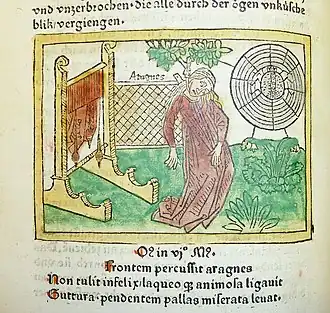 vnd vnzerbrochen · die alle durch der ögen vnküsche
blik vergiengen ·
Aragnes
Oꝰ in vjº Mꝰ ·
Frontem percussit aragnes
Non tulit infelix/laqueo qꝫ animosa ligauit
Guttura · pendentem pallas miserata leuat ·